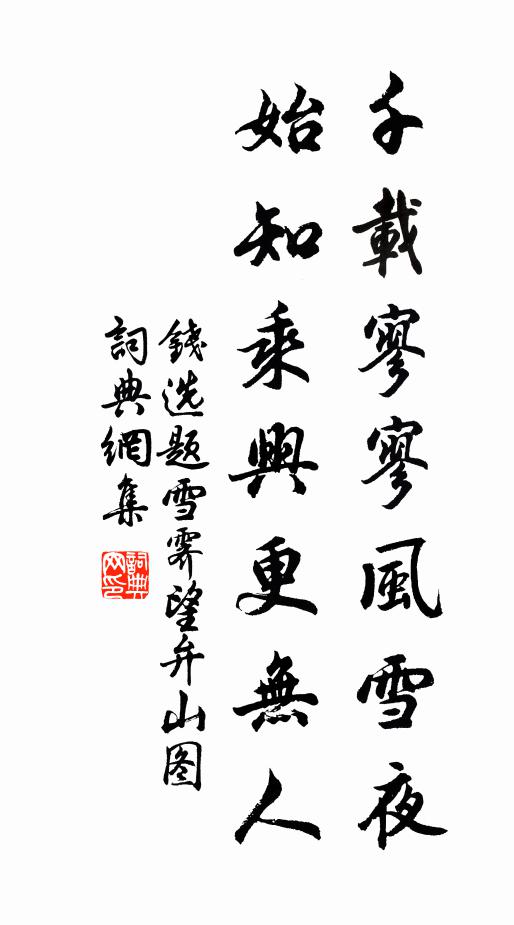 千載寥寥風雪夜
始知乘興更無人
錢选题雪霁望弁山图
詞典網集
詞典網印